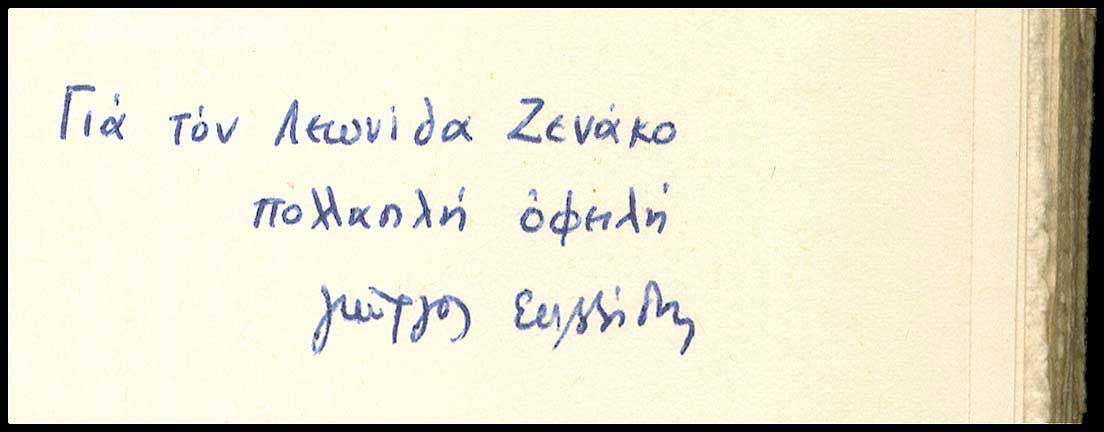 Γιά τόν Λεωνίδα Ζενάκο
πολλαπλή ὀφειλή
Γιῶργος Σαββίδης